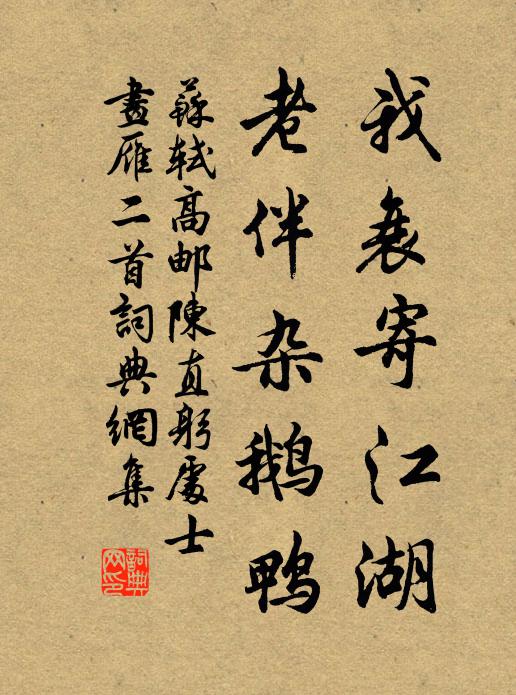 我衰寄江湖
老伴杂鹅鸭
蘇軾高邮陳直躬處士
畫雁二首詞典網集
詞典網印